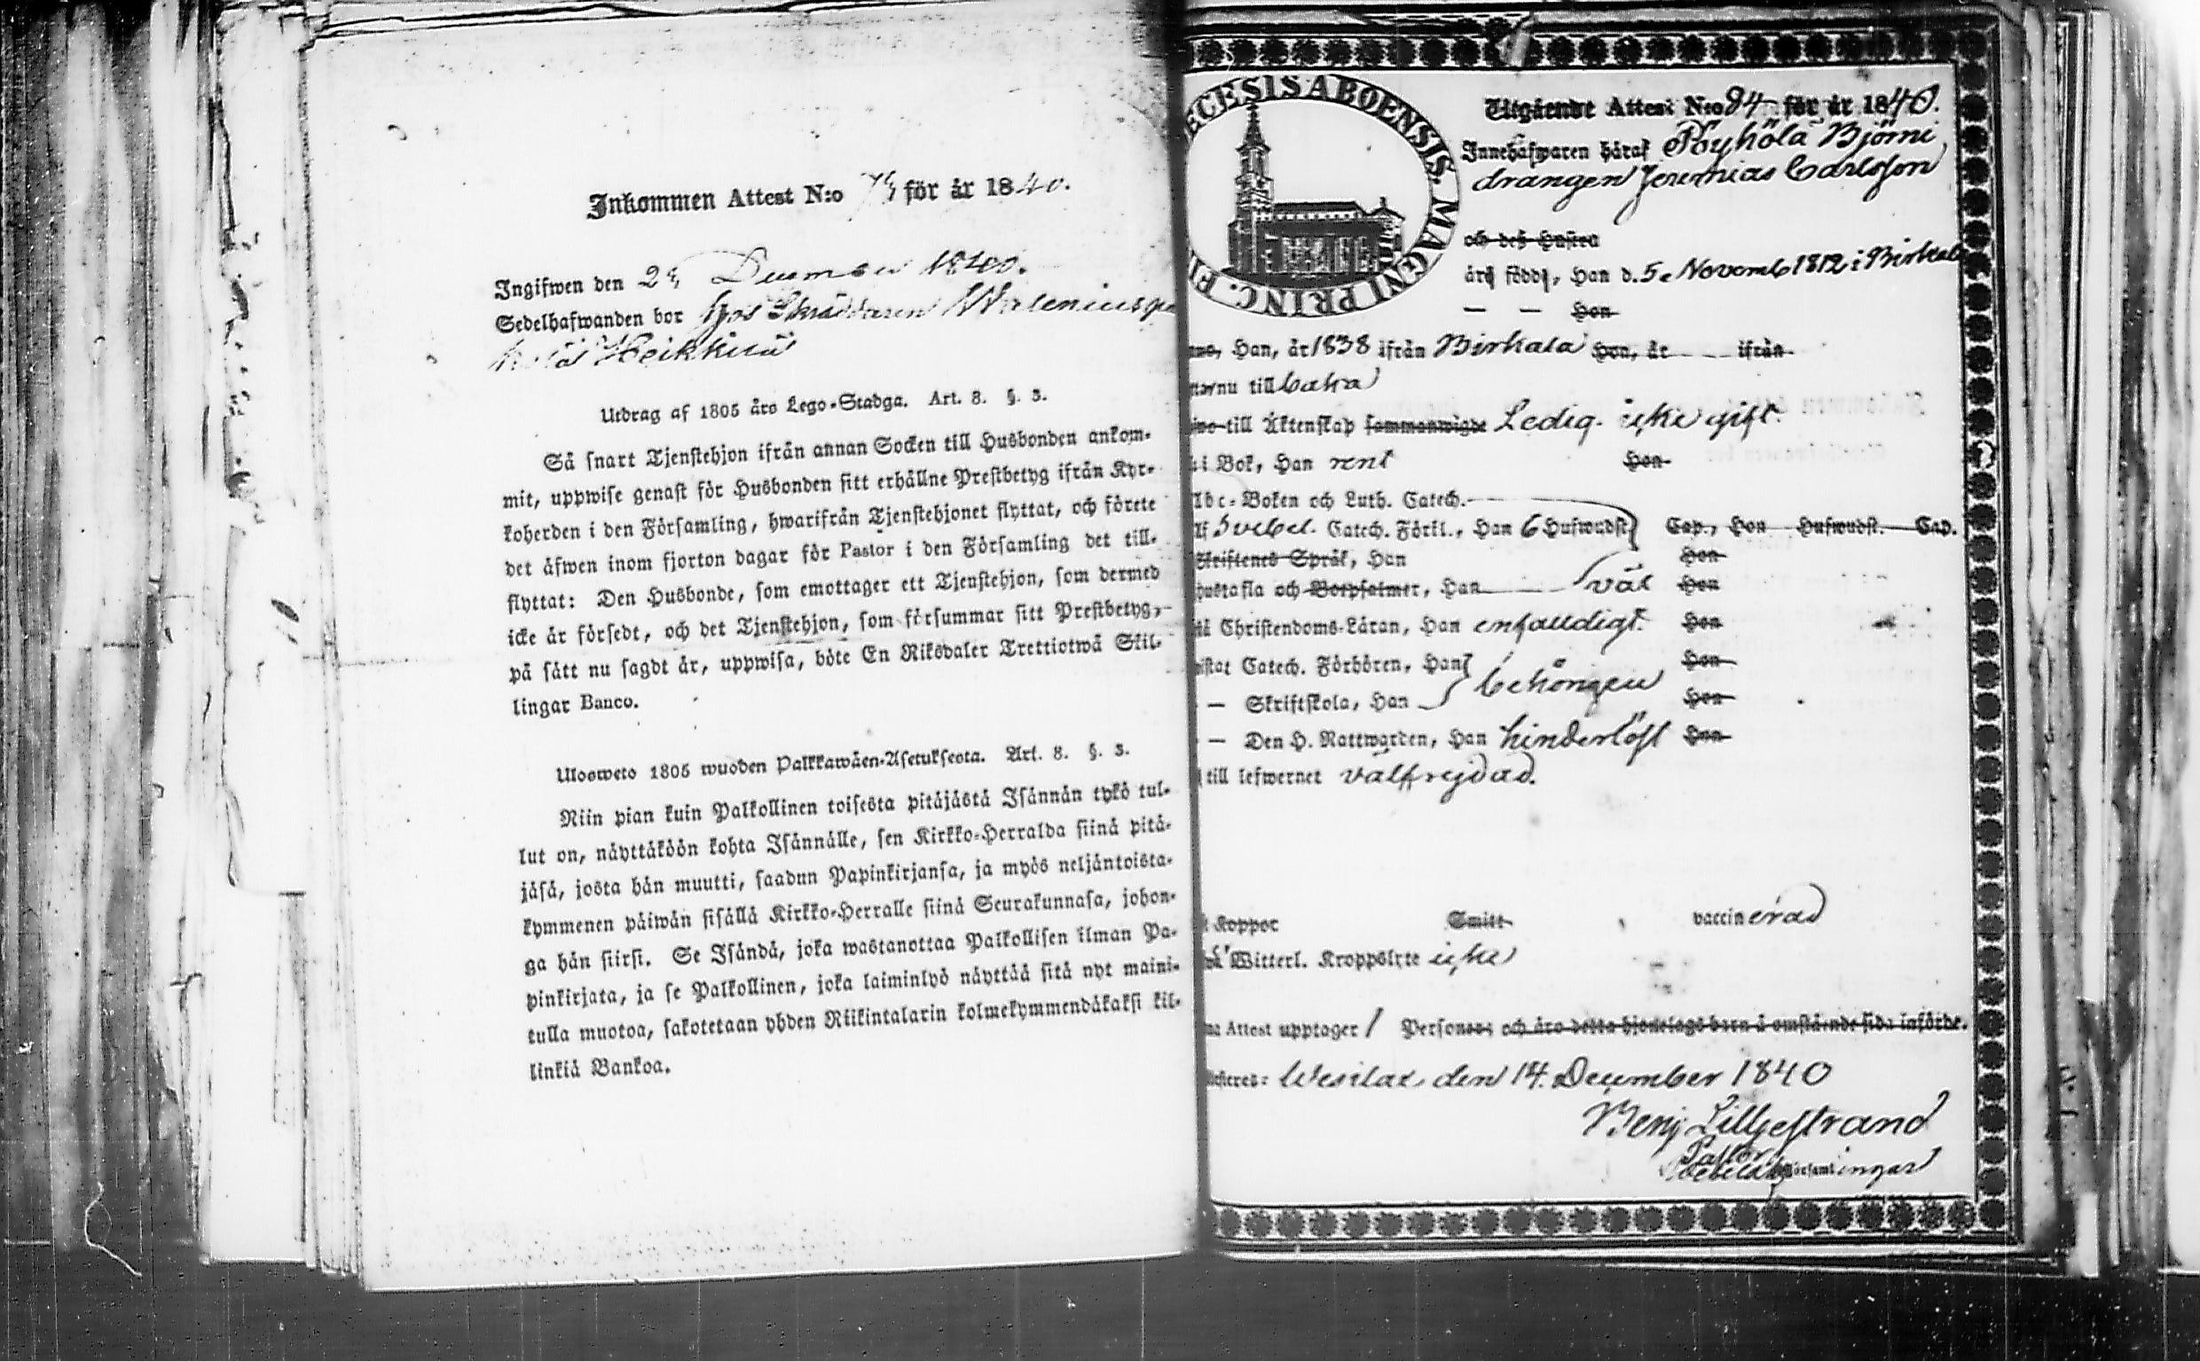 Inkommen Attest N:o 74 för år 1840.
Ingifwen den 24 December 1840.
Sedelhafwanden bor hos Skräddaren Walenius på
Heikkilä
Utdrag af 1805 års Lego-Stadga. Art. 8. §. 3.
Så snart Tjenstehjon ifrån annan Socken till Husbonden ankom-
mit, uppwise genast för Husbonden sitt erhållne Prestbetyg ifrån Kyr-
koherden i den Församling, hwarifrån Tjenstehjonet flyttat, och förete
det äfwen inom fjorton dagar för Pastor i den Församling det till-
flyttat: Den Husbonde, som emottager ett Tjenstehjon, som dermed
icke är försedt, och det Tjenstehjon, som försummar sitt Prestbetyg,
på sätt nu sagdt är, uppwisa, böte En Riksdaler Trettiotwå Skil-
lingar Banco.
Ulosweto 1805 wuoden Palkkawäen-Asetuksesta. Art. 8. §. 3.
Niin pian kuin Palkollinen toisesta pitäjästä Isännän tykö tul-
lut on, näyttäköön kohta Isännälle, sen Kirkko-Herralda siinä pitä-
jäsä, josta hän muutti, saadun Papinkirjansa, ja myös neljäntoista-
kymmenen päiwän sisällä Kirkko-Herralle siinä Seurakunnasa, johon-
ga hän siirsi. Se Isändä, joka wastanottaa Palkollisen ilman Pa-
pinkirjata, ja se Palkollinen, joka laiminlyö näyttää sitä nyt maini-
tulla muotoa, sakotetaan yhden Riikintalarin kolmekymmendäkaksi kil-
linkiä Bankoa.
ECESIS ABOENSIS. MAGNI PRINC.
Utgående Attest N:o 84 för år 1840.
Innehafwaren häraf Pöyhölä Björni
drängen Jeremias Carlsson
och des Hustru
äro födde, Han d. 5 Novemb 1812 i Birkala
— — Hon
Han, år 1838 ifrån Birkala Hon, år ifrån
nu till
till Äktenskap sammanwigde Ledig. icke gift.
i Bok, Han rent Hon
Abc-Boken och Luth. Catech.
Svebel. Catech. Förkl., Han 6 Hufwudst Cap., Hon Hufwudst. Cap.
Skriftenes Språk, Han Hon
hustafla och Botpsalmer, Han väl Hon
Christendoms-Läran, Han enfaldigt. Hon
Catech. Förhören, Han Hon
— Skriftskola, Han behörigen Hon
— Den H. Nattwarden, Han hinderlöst Hon
till lefwernet välfrejdad.
Koppor Smitt vaccinerad
Witterl. Kroppslyte icke
Attest upptager 1 Personer och äro detta hjonelags barn å omstående sida införde.
Wesilax den 14 December 1840
Benj Lillljestrand
Pastor
Församlingar